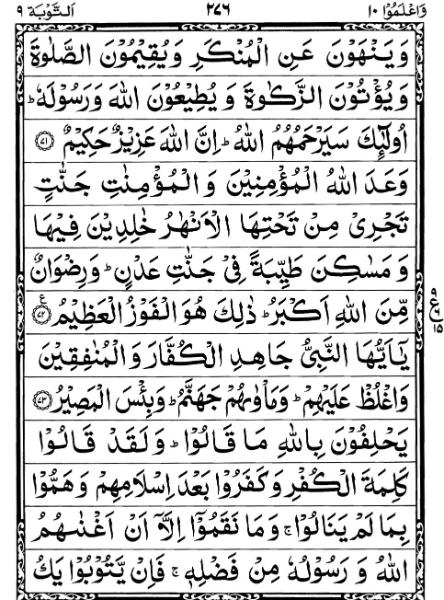 وَاعْلَمُوْٓا ١٠ ٢٧٦ اَلتَّوْبَة ٩
وَيَنْهَوْنَ عَنِ الْمُنْكَرِ وَيُقِيْمُوْنَ الصَّلٰوةَ
وَيُؤْتُوْنَ الزَّكٰوةَ وَ يُطِيْعُوْنَ اللهَ وَرَسُوْلَهٗ ؕ
اُولٰٓئِكَ سَيَرْحَمُهُمُ اللهُ ؕ اِنَّ اللهَ عَزِيْزٌ حَكِيْمٌ ﴿٧١﴾
وَعَدَ اللهُ الْمُؤْمِنِيْنَ وَ الْمُؤْمِنٰتِ جَنّٰتٍ
تَجْرِىْ مِنْ تَحْتِهَا الْاَنْهٰرُ خٰلِدِيْنَ فِيْهَا
وَ مَسٰكِنَ طَيِّبَةً فِىْ جَنّٰتِ عَدْنٍ ؕ وَ رِضْوَانٌ
مِّنَ اللهِ اَكْبَرُ ؕ ذٰلِكَ هُوَ الْفَوْزُ الْعَظِيْمُ ﴿٧٢﴾ ع
يٰۤاَيُّهَا النَّبِىُّ جَاهِدِ الْكُفَّارَ وَ الْمُنٰفِقِيْنَ
وَاغْلُظْ عَلَيْهِمْ ؕ وَمَاْوٰىهُمْ جَهَنَّمُ ؕ وَبِئْسَ الْمَصِيْرُ ﴿٧٣﴾
يَحْلِفُوْنَ بِاللهِ مَا قَالُوْا ؕ وَ لَقَدْ قَالُوْا
كَلِمَةَ الْكُفْرِ وَ كَفَرُوْا بَعْدَ اِسْلَامِهِمْ وَ هَمُّوْا
بِمَا لَمْ يَنَالُوْا ۚ وَ مَا نَقَمُوْٓا اِلَّاۤ اَنْ اَغْنٰىهُمُ
اللهُ وَ رَسُوْلُهٗ مِنْ فَضْلِهٖ ۚ فَاِنْ يَّتُوْبُوْا يَكُ
٩
ع
١٥